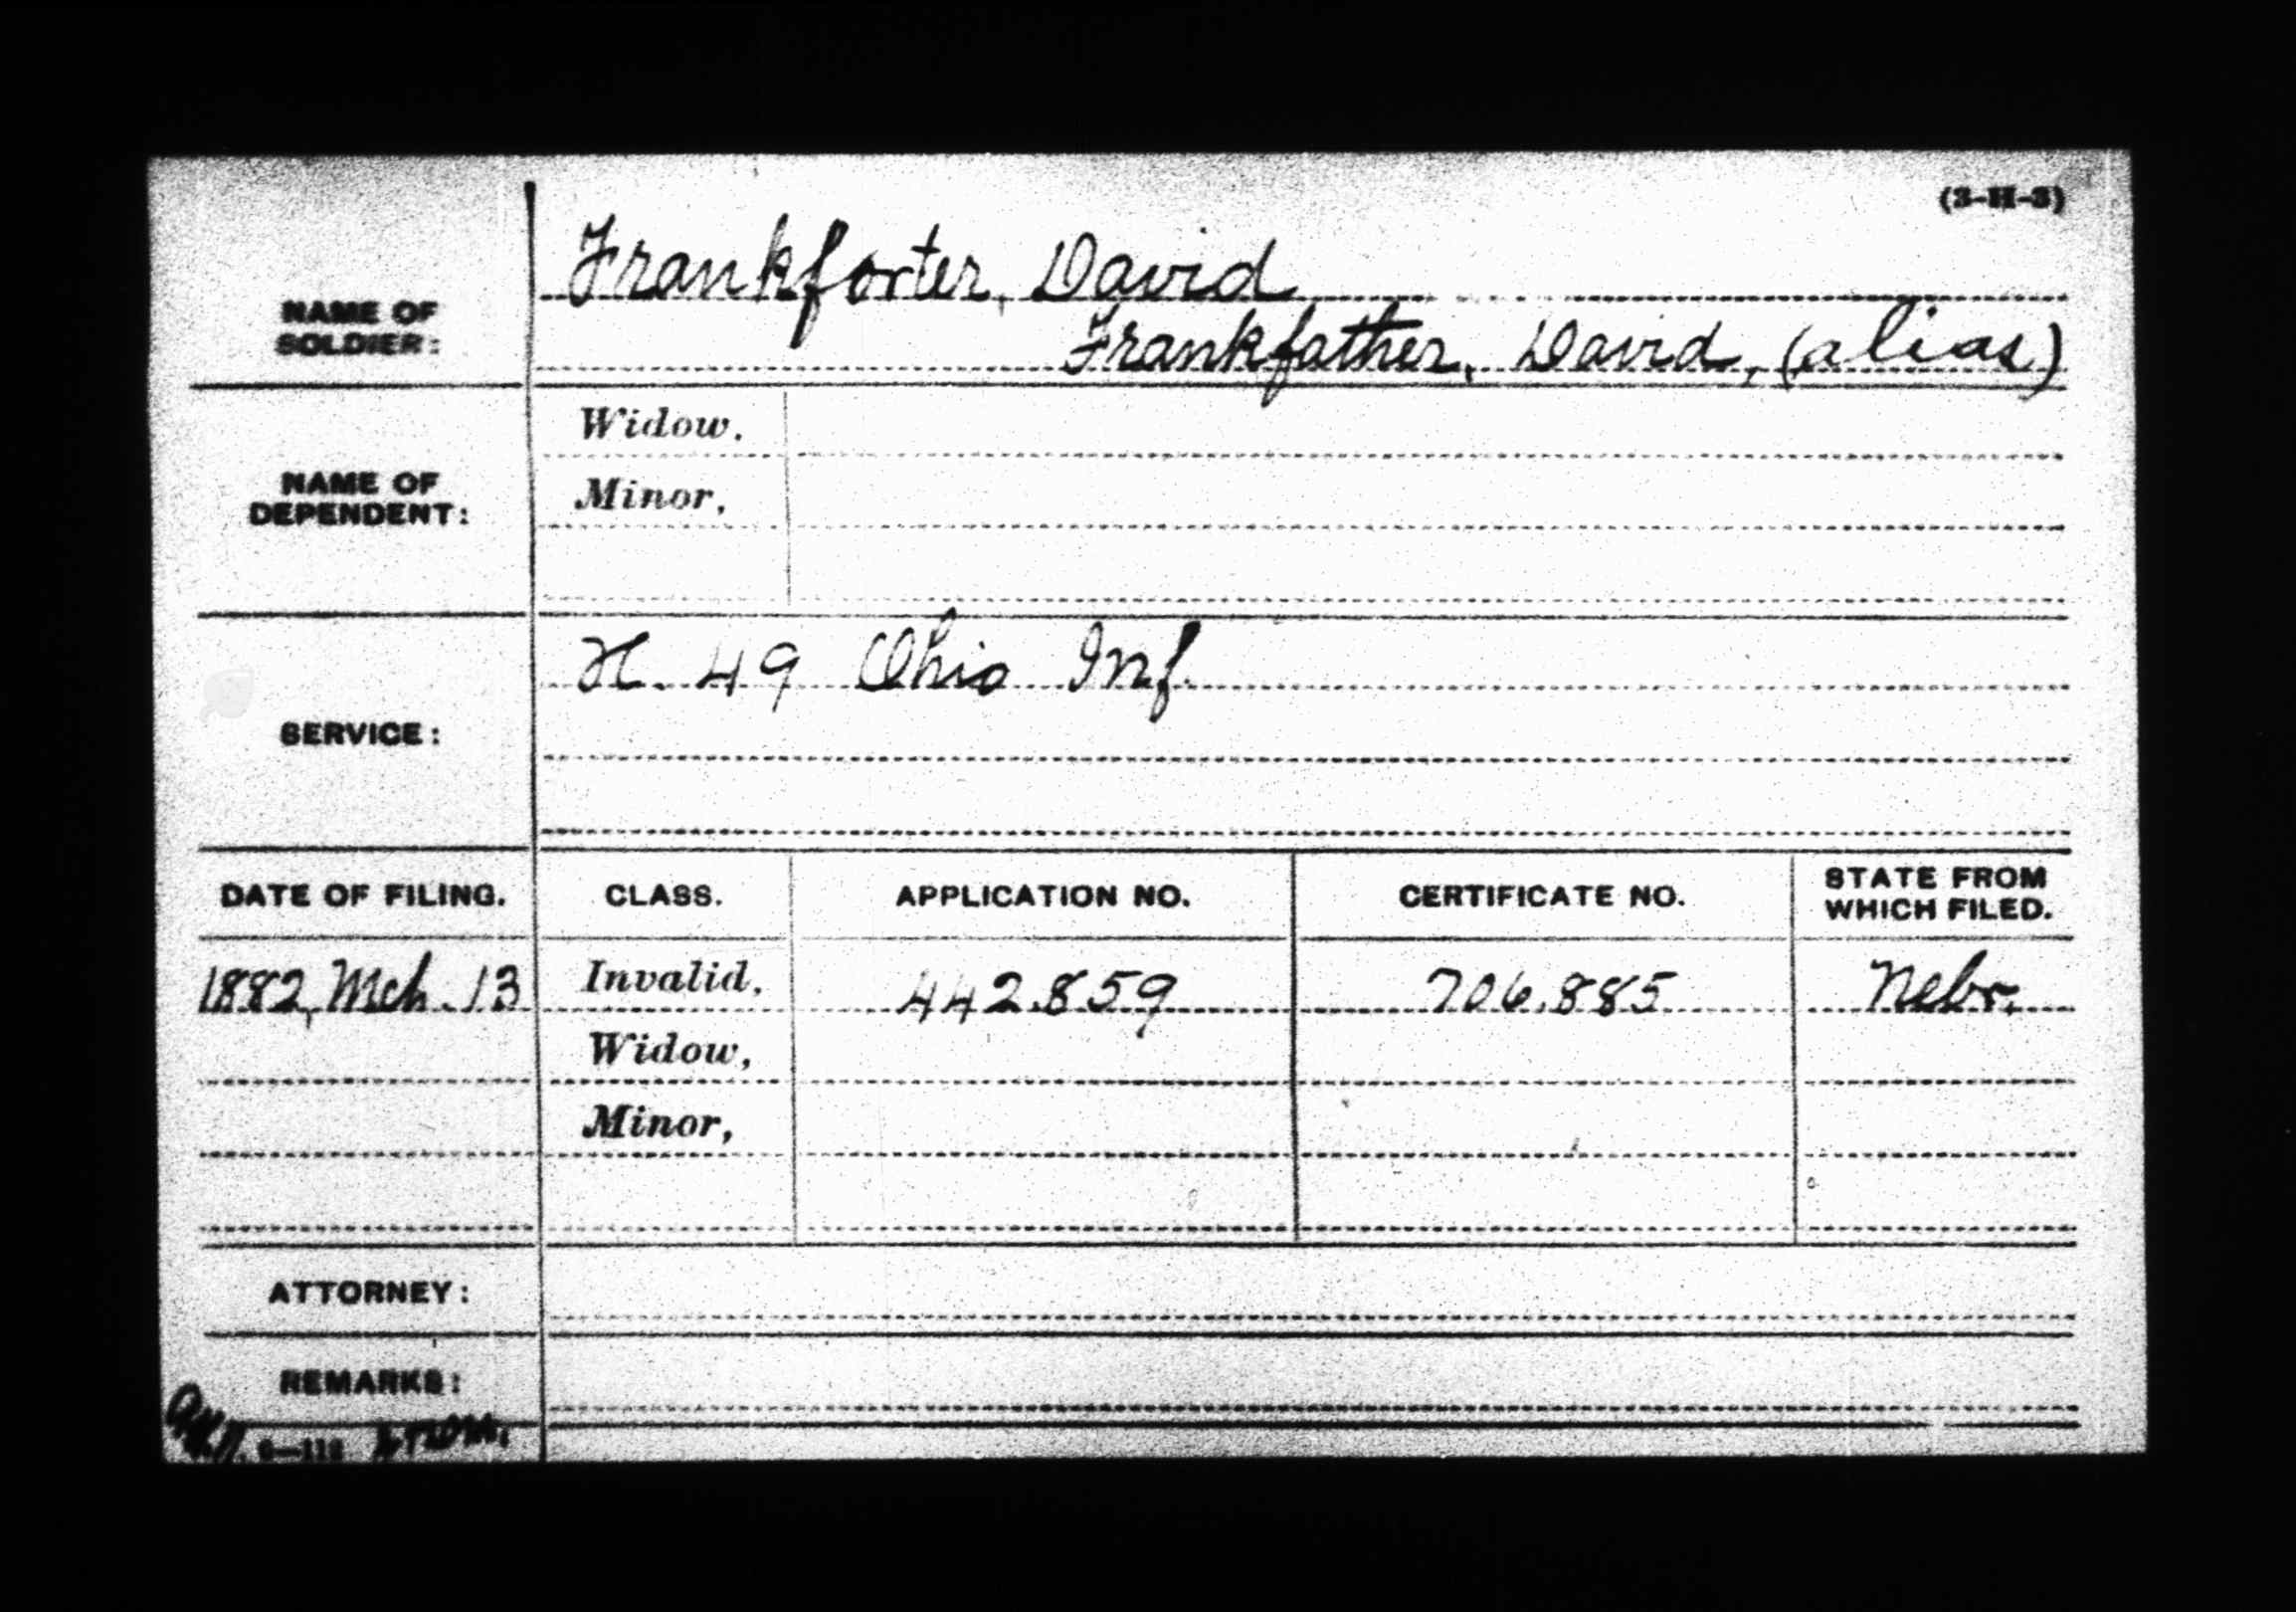 (3-H-3)
NAME OF
SOLDIER:
Frankforter, David
Frankfather, David, (alias)
NAME OF
DEPENDENT:
Widow.
Minor,
SERVICE:
H. 49 Ohio Inf.
DATE OF FILING. CLASS. APPLICATION NO. CERTIFICATE NO. STATE FROM
WHICH FILED.
1882, Mch. 13 Invalid, 442.859 706.885 Nebr.
Widow,
Minor,
ATTORNEY:
REMARKS: